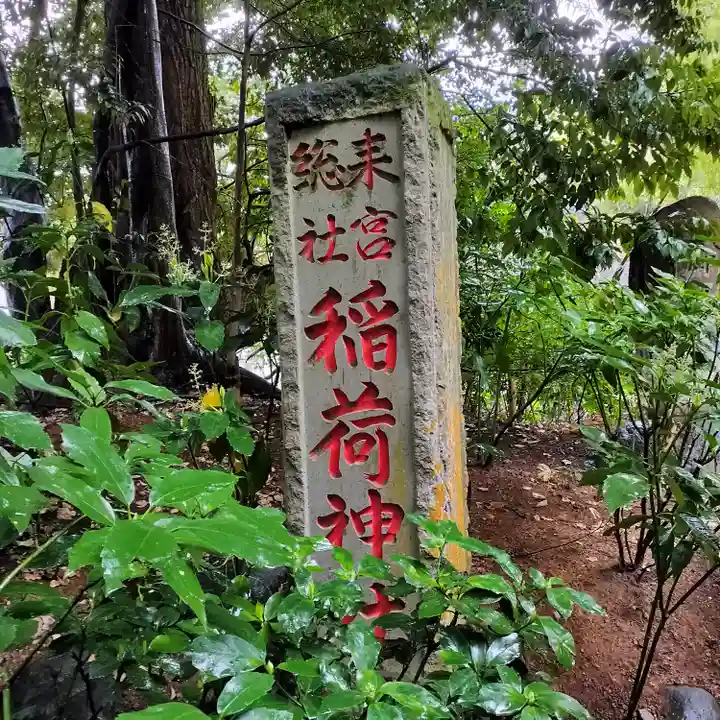 来宮
総社
稲荷神社